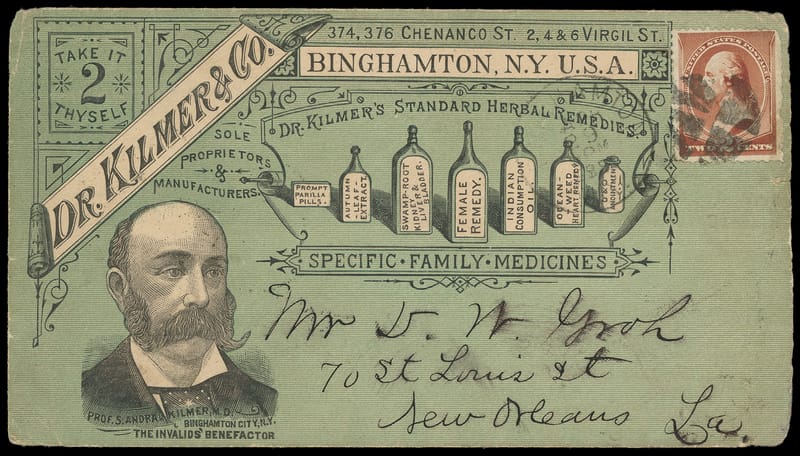 TAKE IT
2
THYSELF
DR. KILMER & CO.
374, 376 CHENANCO ST. 2, 4 & 6 VIRGIL ST.
BINGHAMTON, N.Y. U.S.A.
UNITED STATES POSTAGE
TWO CENTS
SOLE
PROPRIETORS
&
MANUFACTURERS.
DR. KILMER'S STANDARD HERBAL REMEDIES.
PROMPT
PARILLA
PILLS.
AUTUMN
-LEAF-
EXTRACT.
SWAMP-ROOT
KIDNEY &
LIVER BLADDER.
FEMALE
REMEDY.
INDIAN
CONSUMPTION
OIL.
OCEAN-
WEED
HEART REMEDY
U & O
SPECIFIC · FAMILY · MEDICINES
PROF. S. ANDRAL KILMER, M.D.
BINGHAMTON CITY, N.Y.
THE INVALIDS' BENEFACTOR
Mr D. W. Groh
70 St Louis St
New Orleans La.